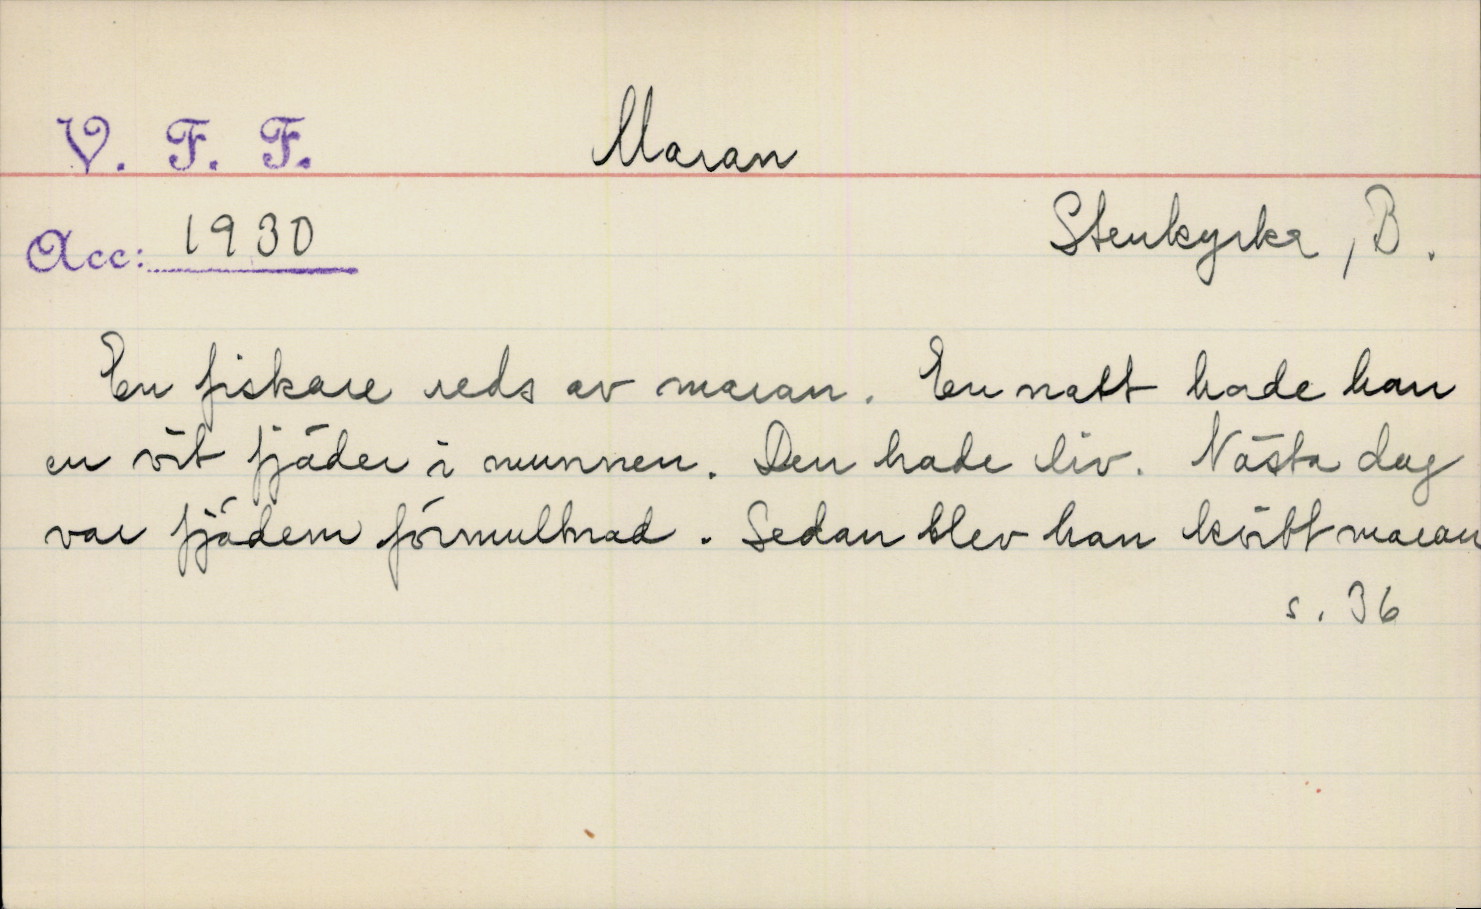 V. F. F.
Maran
Acc: 1930
Stenkyrka, B.
En fiskare reds av maran. En natt hade han
en vit fjäder i munnen. Den hade liv. Nästa dag
var fjädern förmultnad. Sedan blev han kvitt maran
s. 36